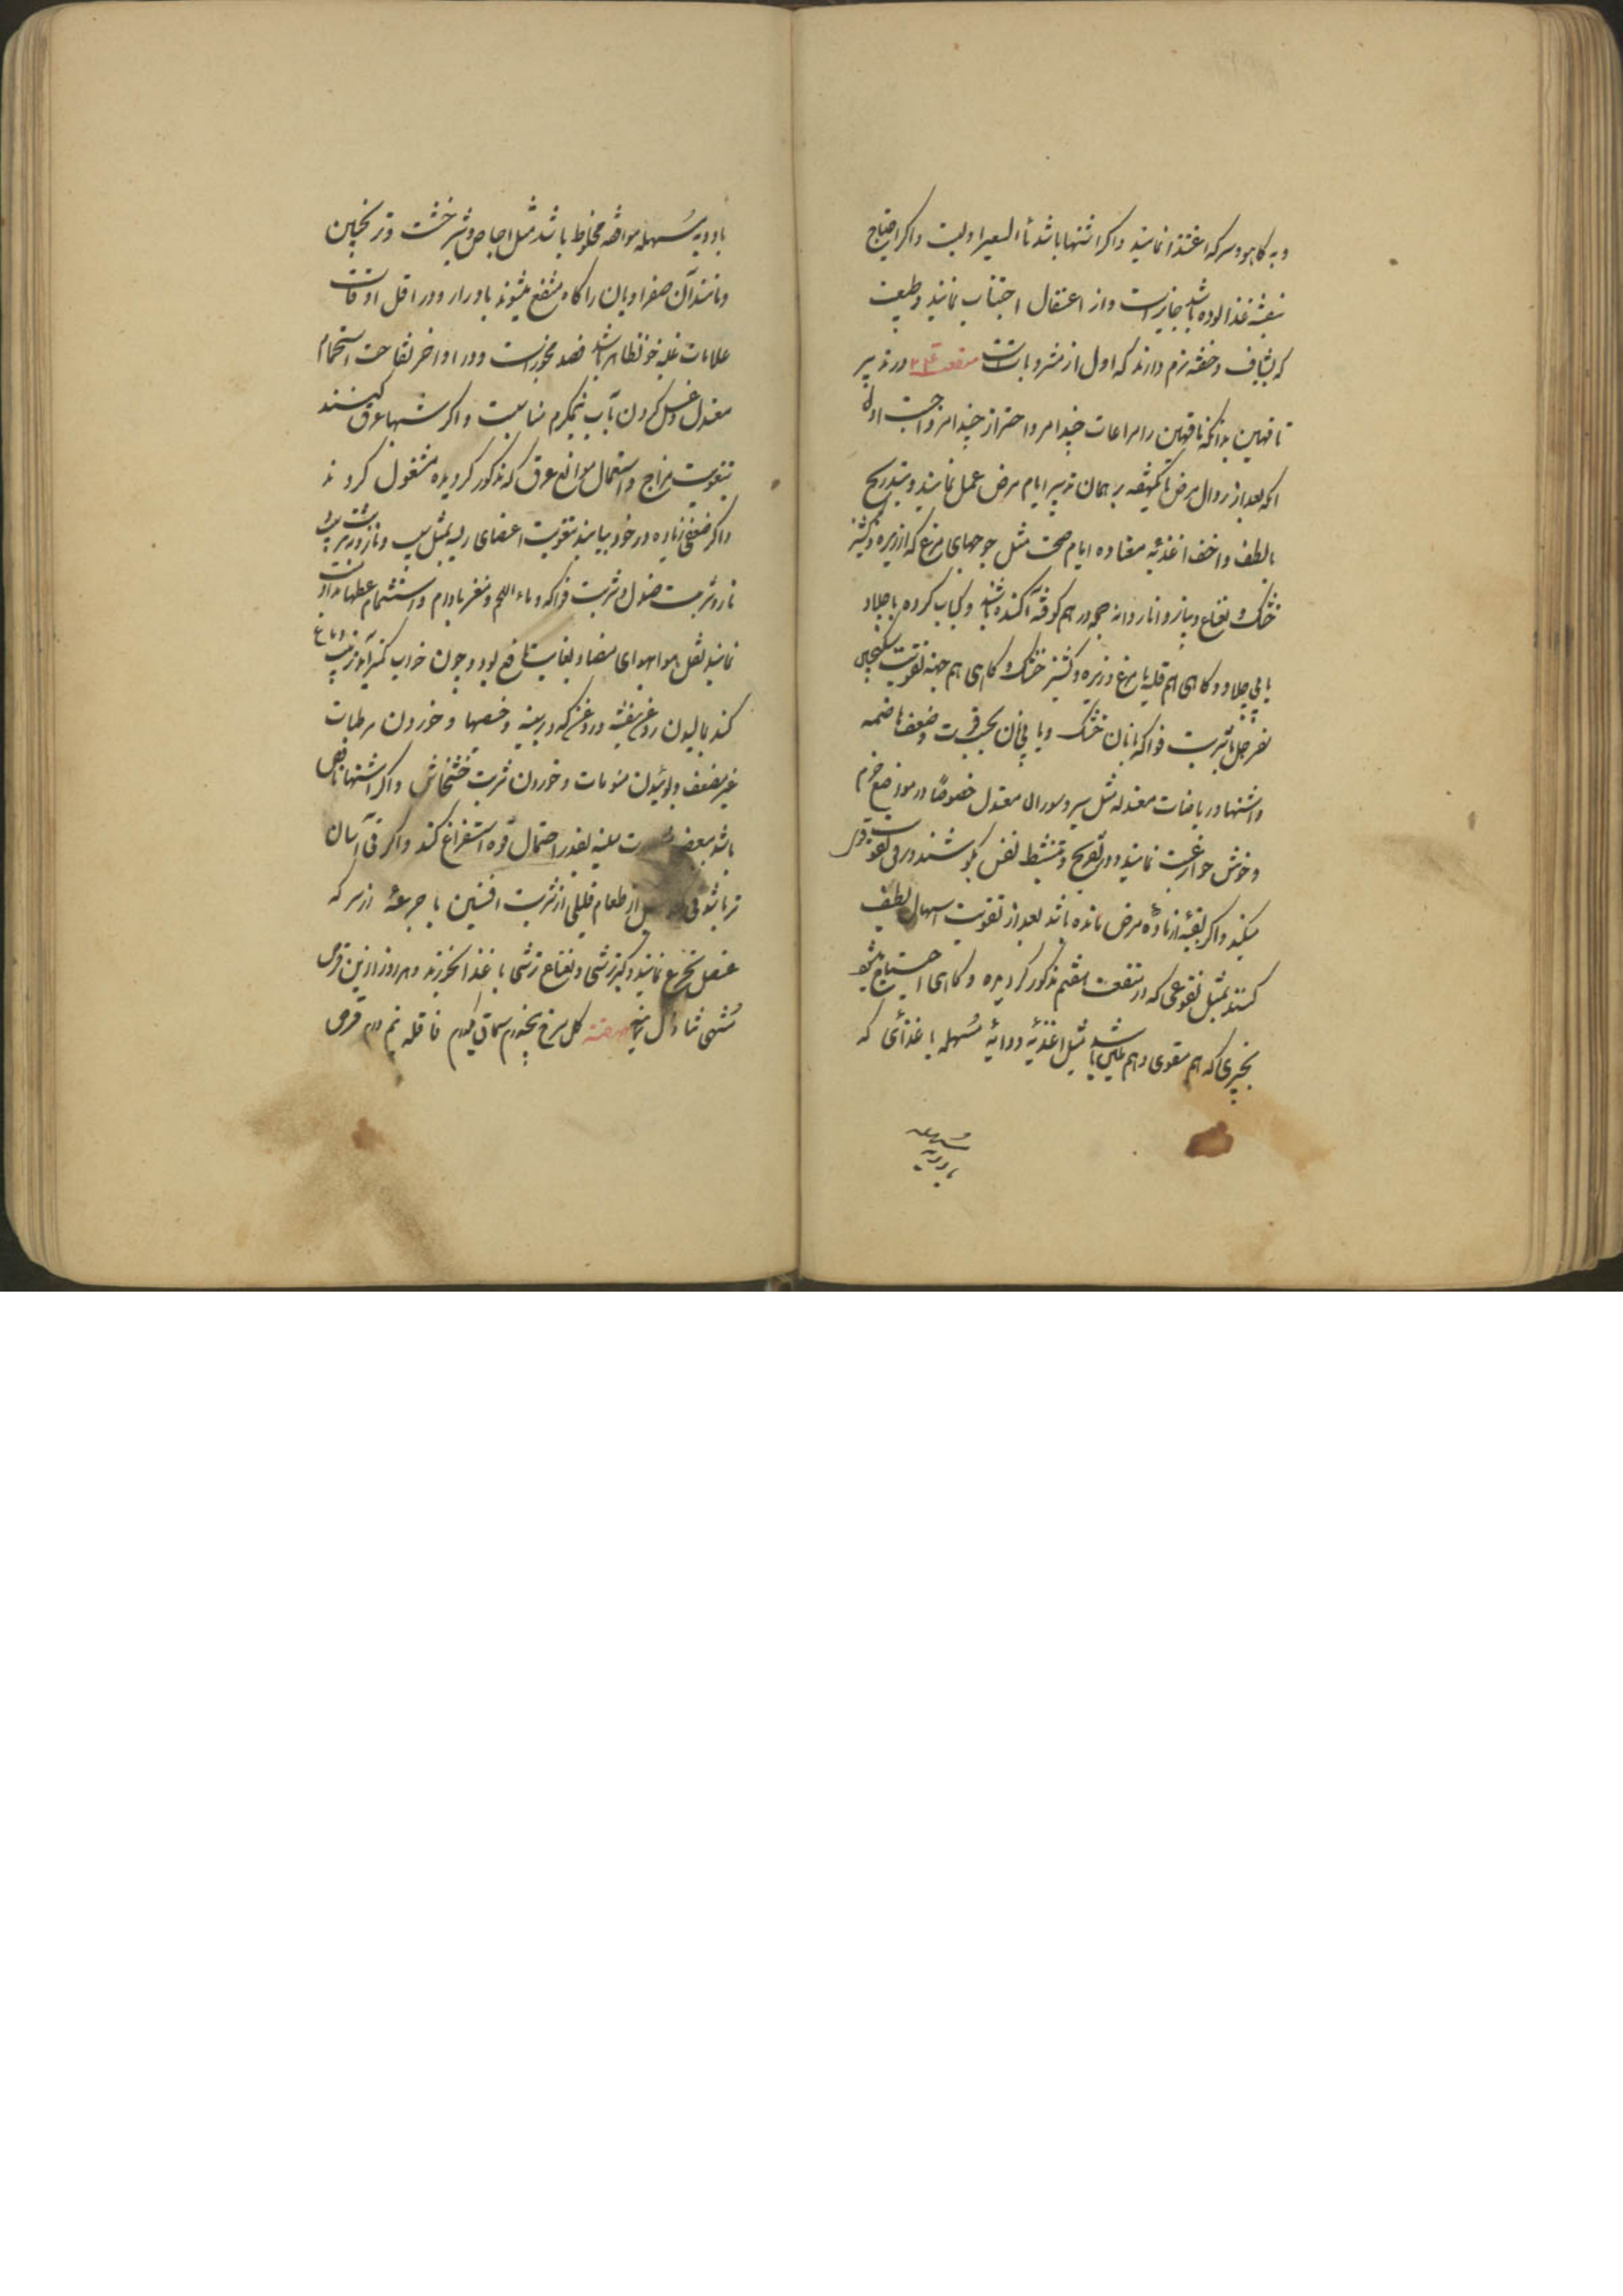 و به کاهو و سرکه اغتذا نمایند و اگر اشتها باشد ماء الشعیر اولیست و اگر احتیاج
بنفشه غذا آلوده باشد جایز است و از اعتقال اجتناب نمایند و طبیعت
که بشیاف و حقنه نرم دارند که اول از مشروباتست منفعت در تدبیر
ناقهین بدانکه ناقهین را مراعات چند امر و احتراز از چند امر واجبست اول
آنکه بعد از زوال مرض تا یکهفته بر همان تدبیر ایام مرض عمل نمایند و بتدریج
بالطف و اخف اغذیه معتاده ایام صحت مثل جوجهای مرغ که از زیره و کشنیز
خشک و نعناع و پیاز و اناردانه همه در هم کوفته آکنده باشند و کباب کرده با چلاو
یا بی چلاو و گاهی هم قلیه با مرغ و زیره و کشنیز خشک و گاهی هم جهة تقویت سکنجبین
سفرجلی یا شربت فواکه با نان خشک و یا بی نان بحسب قوت و ضعف هاضمه
و اشتها و ریاضات معتدله مثل سیر و سواری معتدل خصوصا در مواضع خرم
و خوش هوا رغبت نمایند و در تفریح و تنشیط نفس بکوشند و در فی
میکنند و اگر بقیه از مادّه مرض مانده باشد بعد از تقویت اسهال لطیف
کنند بمثل نقوعی که در منفعت هشتم مذکور گردیده و گاهی احتیاج میشود
بچیزی که هم مقوی و هم ملین باشد مثل اغذیه دوائیه مُسهله یا غذائی که
بادویه مُسهله
بادویه مُسهله موافقه مخلوط باشد مثل اجاص و شیرخشت و ترنجبین
و مانند آن صفراویان را گاه منتفع میشوند بادرار و در اقل اوقات
علامات غلبه خون ظاهر باشد فصد مجوز است و در اواخر نقاهت استحمام
معتدل و غسل کردن بآب نیمگرم مناسبست و اگر شبها عرق کنند
بتقویت مزاج و استعمال موانع عرق که مذکور گردیده مشغول گردند
و اگر ضعفی زیاده در خود بیابند بتقویت اعضای رئیسه بمثل سیب و
نار و شربت صندل و شربت فواکه و ماء اللحم و مغز بادام و استشمام عطرها مداومت
نمایند نقل هوا بهوای مضاد بغایت نافع بود و چون خواب کمتر آید ترتیب دماغ
کنند بمالیدن روغن بنفشه و روغن کدو در بینی و خصیها و خوردن مرطبات
غیر مضعف و بوئیدن منومات و خوردن شربت خشخاش و اگر اشتها ناقص
باشد ببعضی ملینه بقدر احتمال قوه استفراغ کنند و اگر قی آسان
تر باشد قی از طعام قلیلی از شربت افسنتین با جرعه از سرکه
عنصل تجرع نمایند و کبر ترشی و نعناع ترشی با غذا بخورند و هر روز ازین قرص
مُشتهی تناول نمایند صفته گل سرخ پنجدرم سماق یکدرم قاقله نیم درم قرص